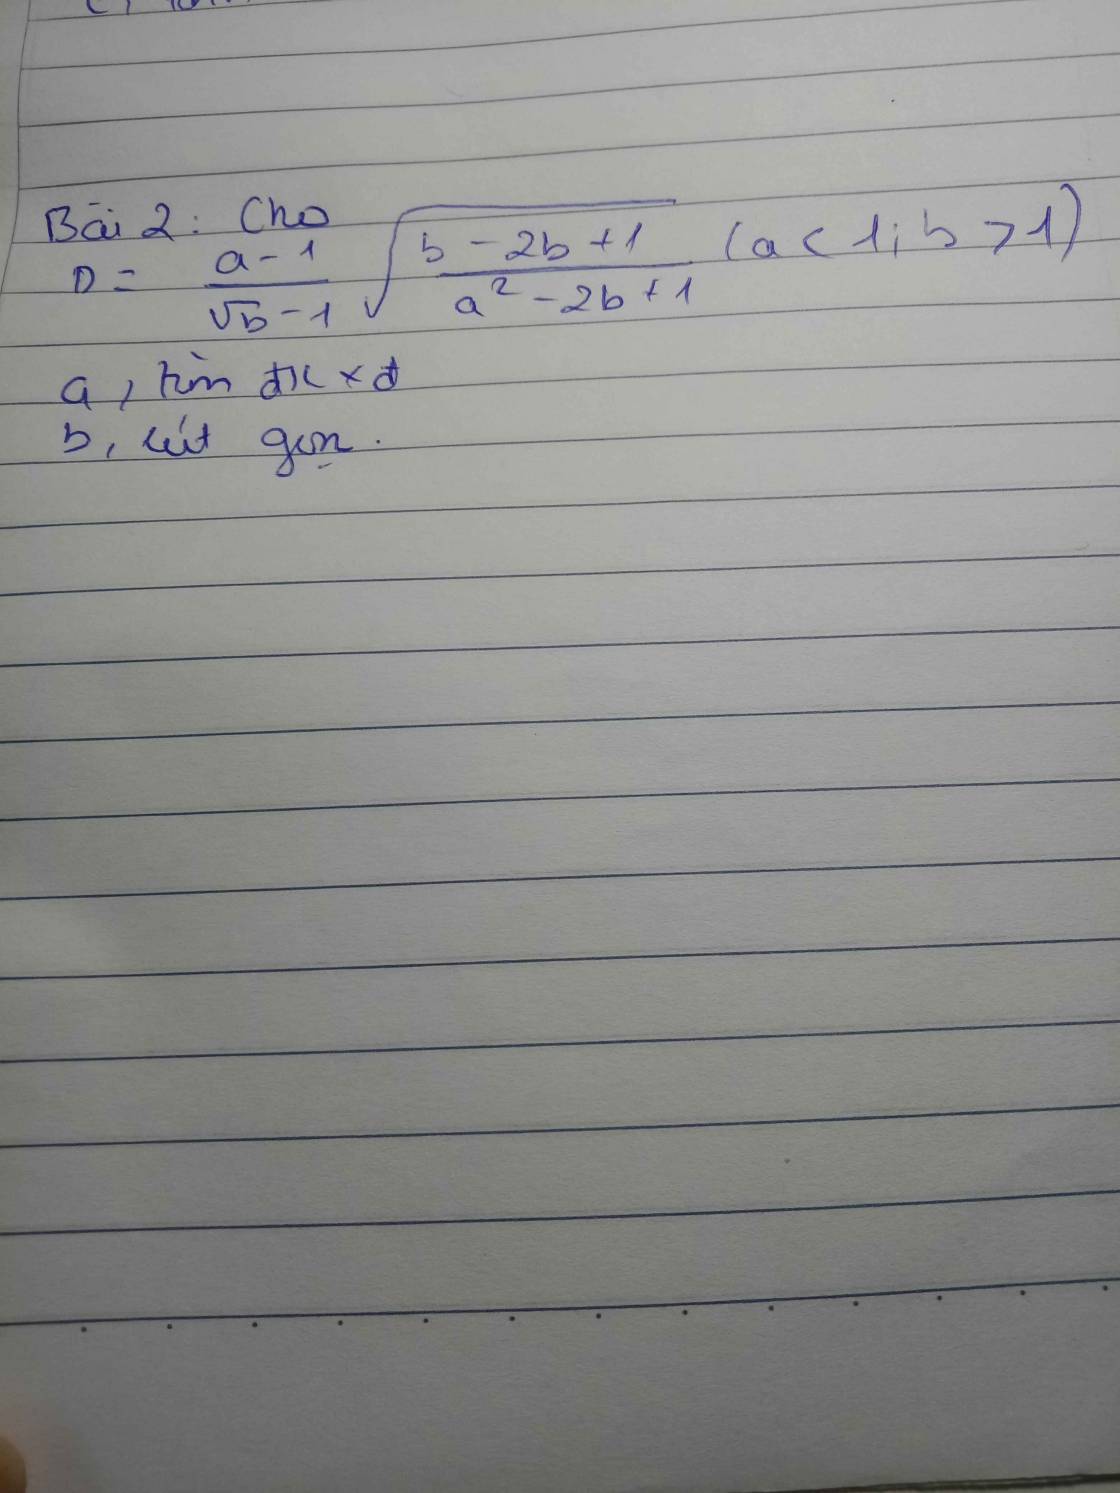 Bài 2: Cho
D = \frac{a-1}{\sqrt{b}-1} \sqrt{\frac{b-2b+1}{a^2-2b+1}} (a < 1; b > 1)
a, tìm đk xđ
b, rút gọn.